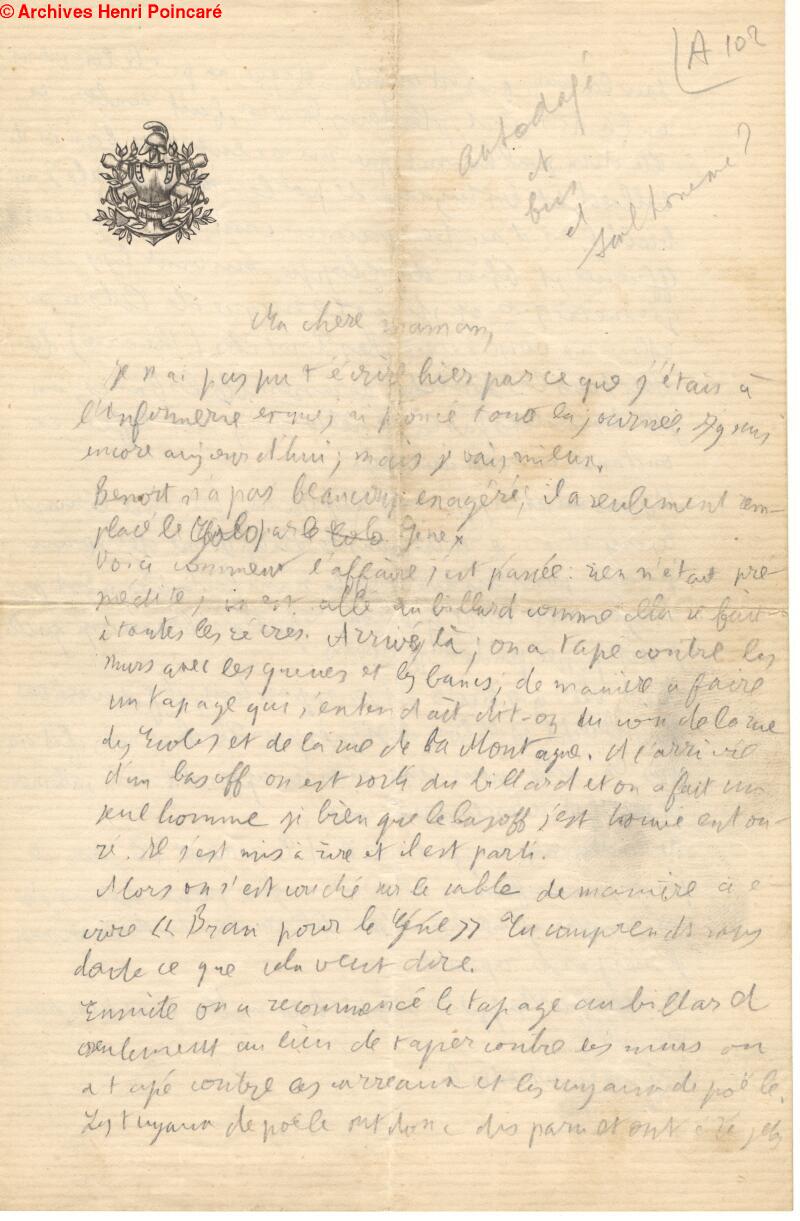 © Archives Henri Poincaré
A 102
Autodafé
et
bus
et
seul homme ?
Ma chère maman,
Je n'ai pas pu t'écrire hier parce que j'étais à
l'infirmerie et que j'ai pioncé toute la journée. J'y suis
encore aujourd'hui; mais je vais mieux.
Benoît n'a pas beaucoup exagéré; il a seulement rem-
placé le par le Géné
Voici comment l'affaire s'est passée: rien n'était pré-
médité; on est allé au billard comme cela se fait
à toutes les récrés. Arrivé là; on a tapé contre les
murs avec les queues et les bancs; de manière à faire
un tapage qui s'entendait dit-on du coin de la rue
des Ecoles et de la rue de la Montagne. A l'arrivée
d'un basoff on est sorti du billard et on a fait un
seul homme si bien que le basoff s'est trouvé entou-
ré. Il s'est mis à rire et il est parti.
Alors on s'est couché sur le sable de manière à é-
crire « Bran pour le Géné » Tu comprends sans
doute ce que cela veut dire.
Ensuite on a recommencé le tapage au billard
seulement au lieu de taper contre les murs on
a tapé contre les carreaux et les tuyaux de poële.
Les tuyaux de poële ont donc disparu et ont été jetés